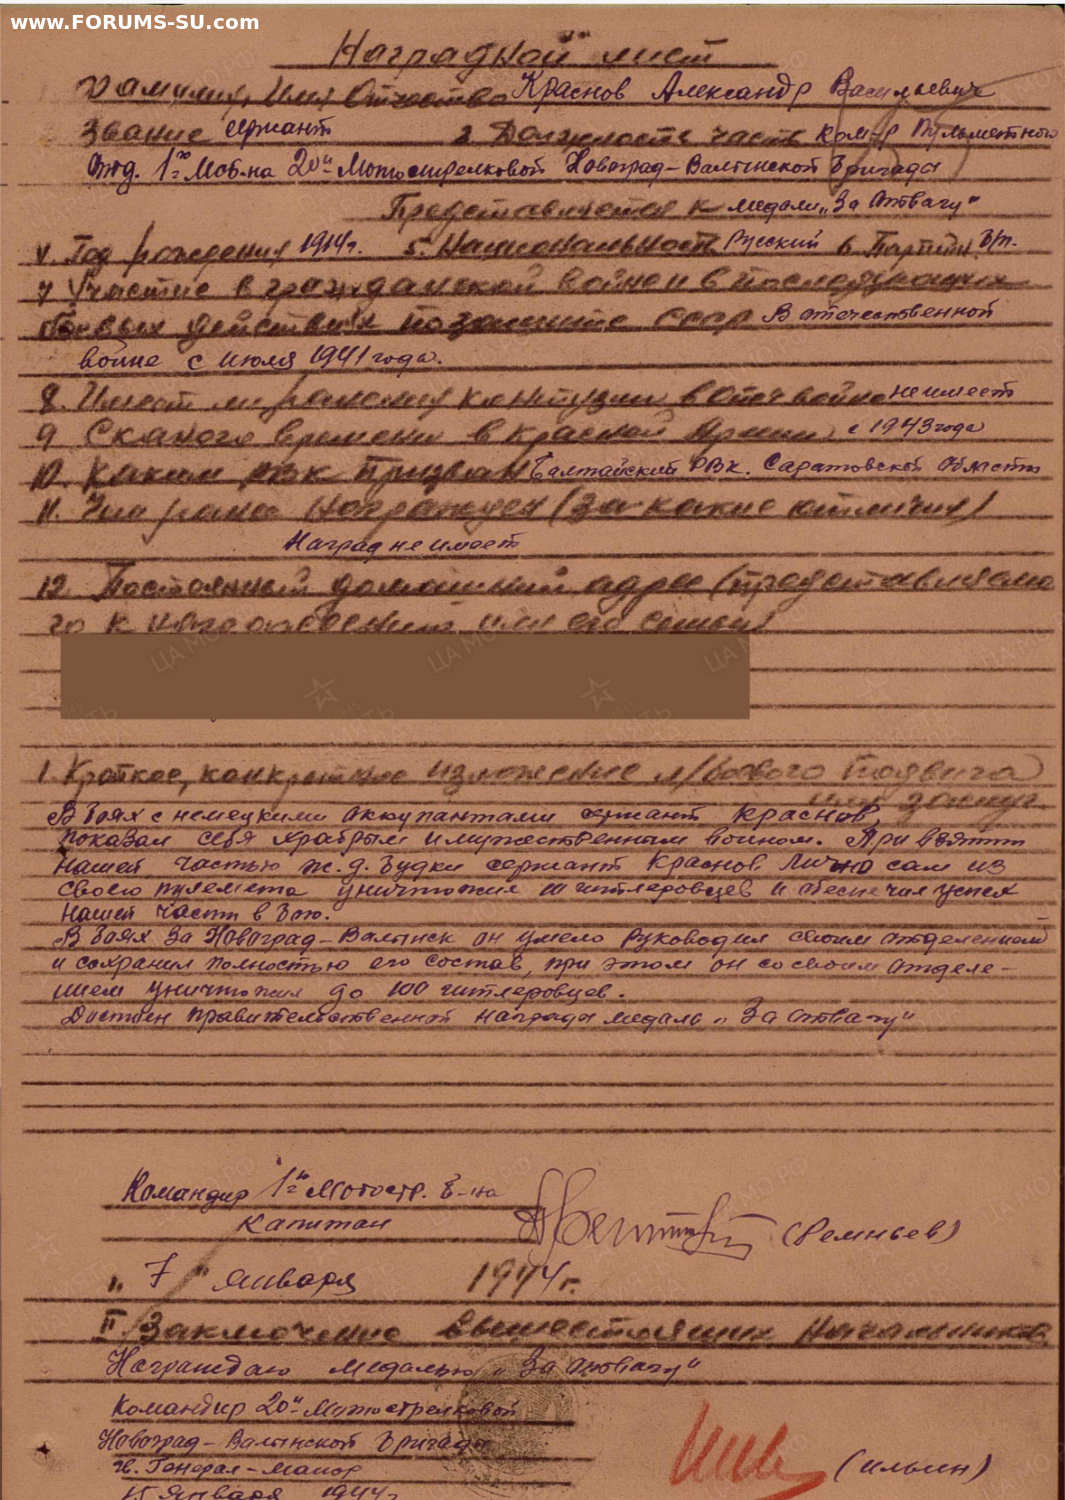 www.FORUMS-SU.com
Наградной лист
Фамилия, Имя Отчество Краснов Александр Васильевич
2. Звание сержант 3 Должность часть ком-р Пульметного
Отд. 1го Мсб-на 20й Мотострелковой Новоград-Валынской Бригады
Представляется к медали „За Отвагу"
4. Год рождения 1914г. 5. Национальность Русский 6. Партийн. б/п.
7 Участие в гражданской войне и в последующих
боевых действиях по защите СССР В отечественной
войне с июля 1941 года.
8. Имеет ли ранения контузии в отеч войне не имеет
9 С какого времени в Красной Армии с 1943 года
10. Каким РВК призван Балтайский РВК. Саратовской Области
11. Чем ранее награжден (за какие отличия)
Наград не имеет
12. Постоянный домашний адрес (представляемо
го к награждению или его семьи)
1. Краткое, конкретное изложение л/боевого подвига
или заслуг
В боях с немецкими аккупантами сержант Краснов,
показал себя храбрым и мужественным воином. При взятии
нашей частью ж.д. Будки сержант Краснов лично сам из
своего пулемета уничтожил 10 гитлеровцев и обеспечил успех
нашей части в бою.
В боях за Новоград-Валынск он умело руководил своим отделением
и сохранил полностью его состав, при этом он со своим отделе-
нием уничтожил до 100 гитлеровцев.
Достоин правительственной награды медаль „За Отвагу"
Командир 1го Мотостр. б-на
Капитан (Ремньев)
„ 7 " января 1944г.
II Заключение вышестоящих начальников
Награждаю медалью „За Отвагу"
Командир 20й Мотострелковой
Новоград-Валынской Бригады
Гв. Генерал-Майор (Ильин)
15 Января 1944г